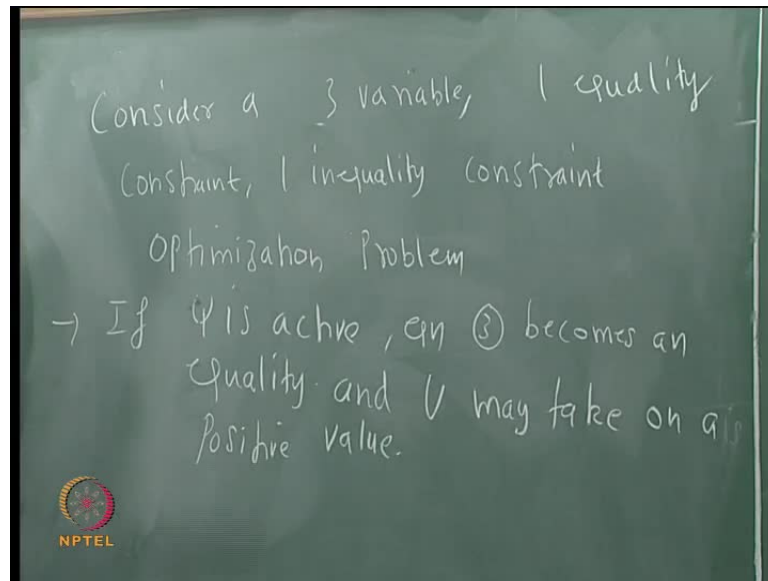 Consider a 3 variable, 1 equality
constraint, 1 inequality constraint
Optimization Problem
→ If Ψ is active, eqn ③ becomes an
equality and U may take on a
Positive value.
NPTEL